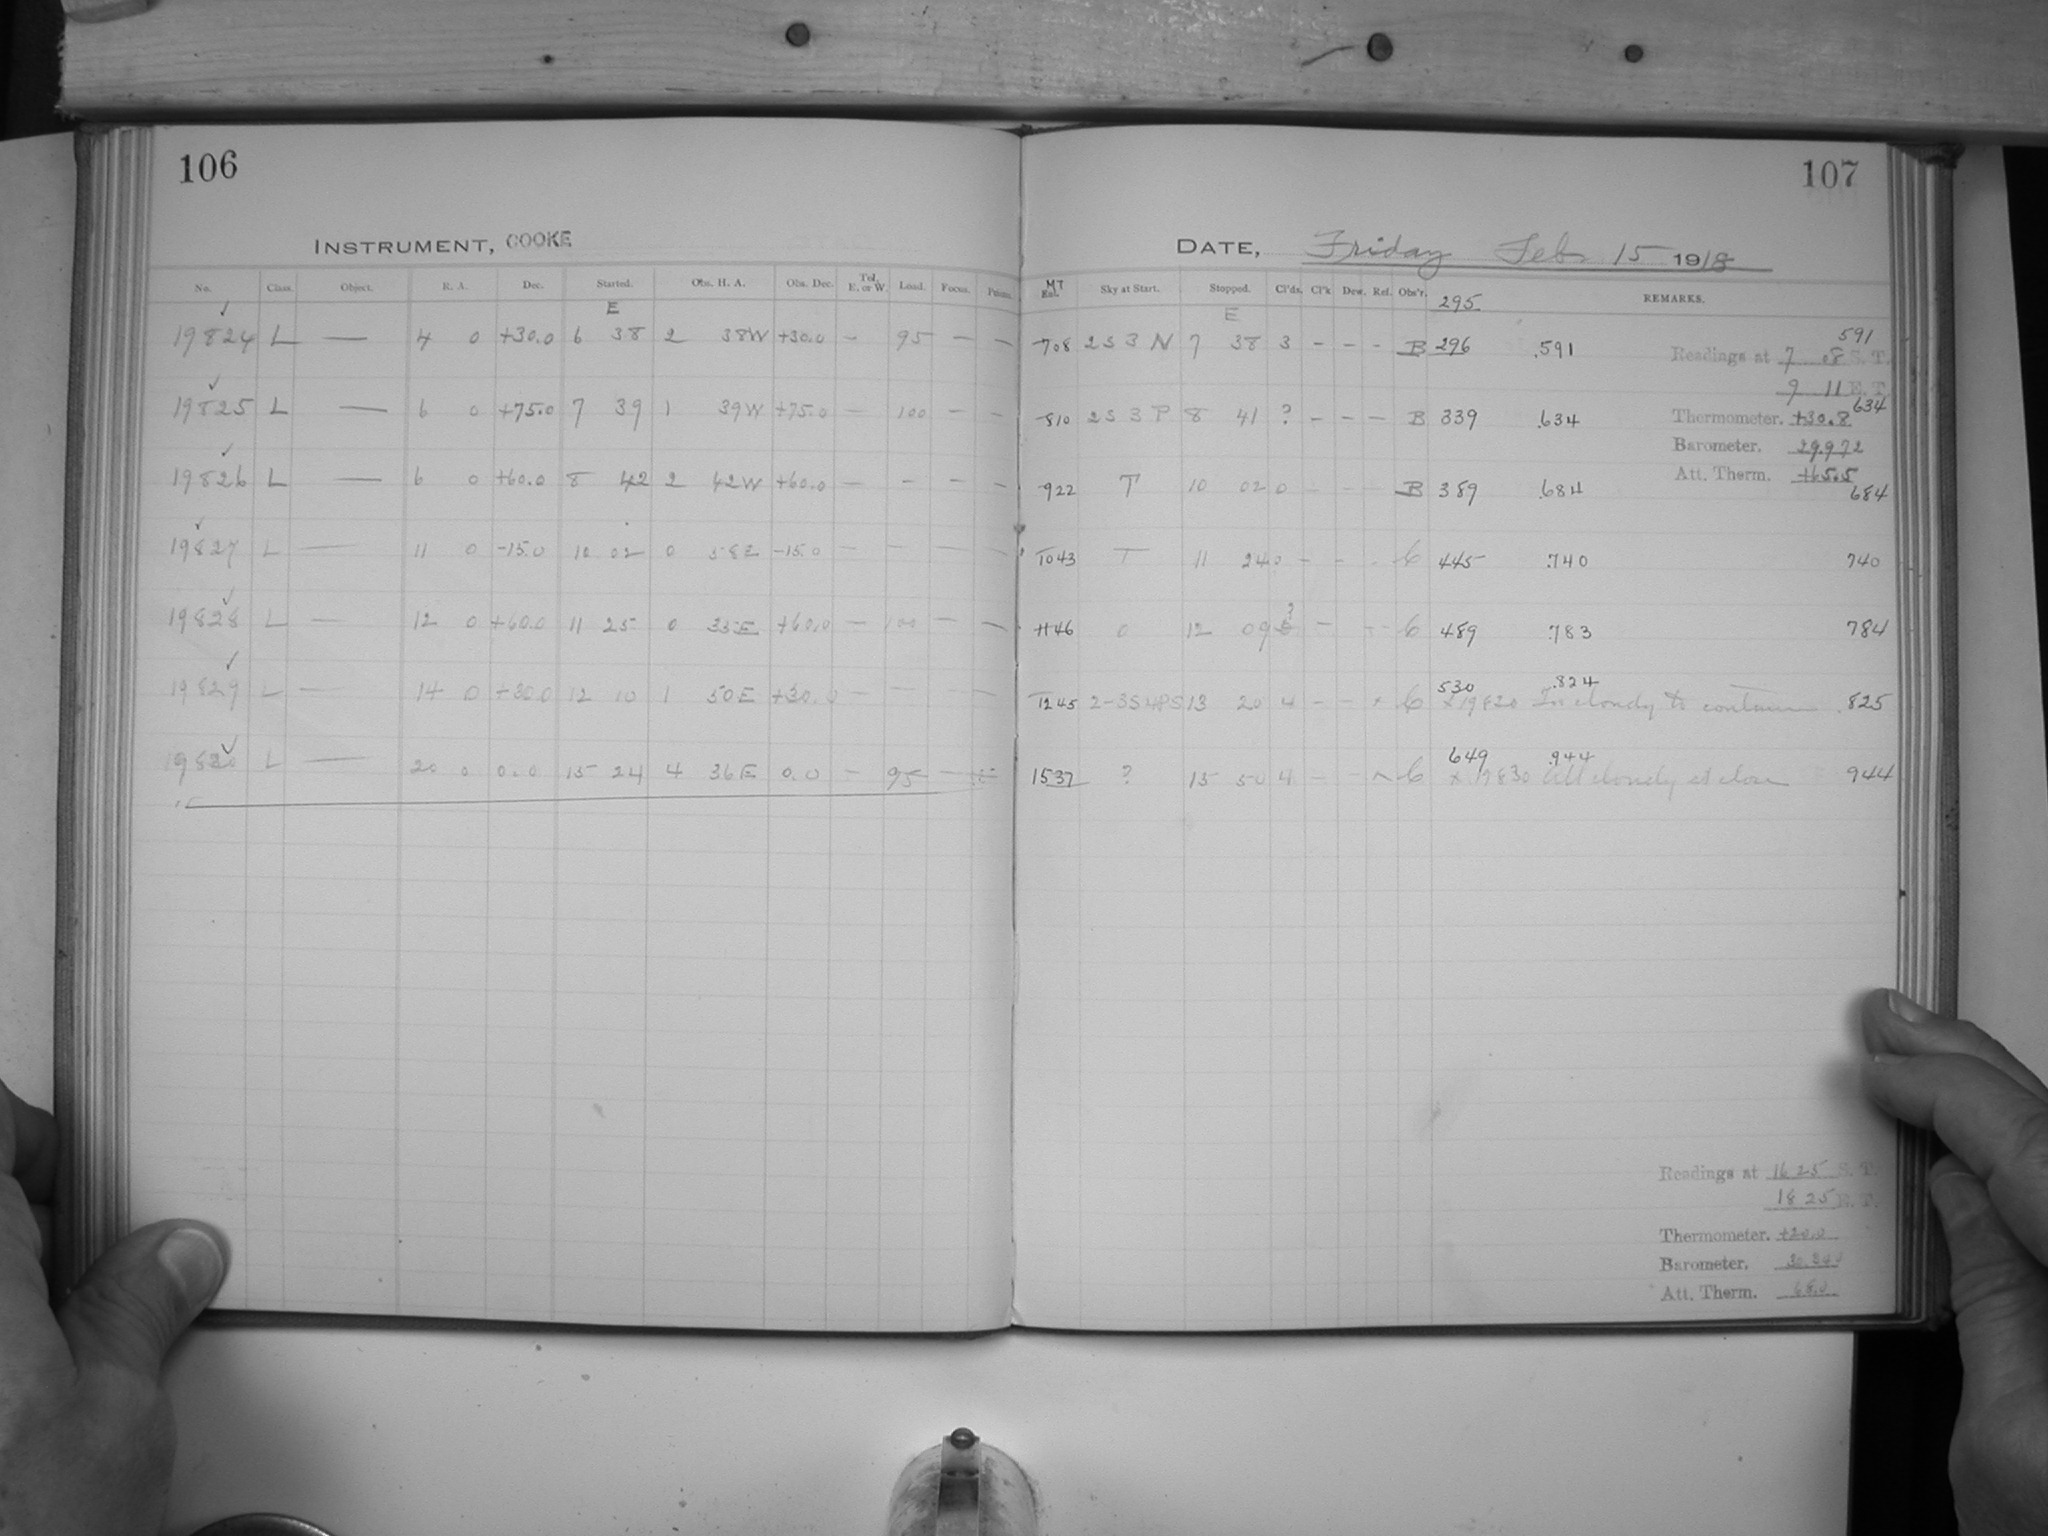 106
107
INSTRUMENT, COOKE
DATE, Friday Feb 15 1918
No. Class. Object. R. A. Dec. Started. Obs. H. A. Obs. Dec. Tel. E. or W. Load. Focus.
MT Sky at Start. Stopped. Cl'ds. Cl'k Dew. Ref. Obs'r. 295 REMARKS.
E
E
19824 L — 4 0 +30.0 6 38 2 38W +30.0 – 95 – – 708 2S 3 N 7 38 3 – – – B 296 .591 591
Readings at 7 08 S. T.
9 11 E. T.
19825 L — 6 0 +75.0 7 39 1 39W +75.0 – 100 – – 810 2S 3 P 8 41 ? – – – B 339 .634 634
Thermometer. +30.8
Barometer. 29.972
Att. Therm. +65.5
19826 L — 6 0 +60.0 8 42 2 42W +60.0 – – – – 922 T 10 02 0 – – – B 389 .684 684
19827 L — 11 0 -15.0 10 02 0 58E -15.0 – – – – 1043 T 11 24 0 – – – 6 445 .740 740
19828 L — 12 0 +60.0 11 25 0 35E +60.0 – 100 – – 1146 0 12 09 ? – – – 6 489 .783 784
19829 L — 14 0 +30.0 12 10 1 50E +30.0 – – – – 1245 2-3S4PS 13 20 4 – – 6 530 .824 825
x 19820 Too cloudy to continue
19820 L — 20 0 0.0 15 24 4 36E 0.0 – 95 – 1537 ? 15 50 4 – – 6 649 .944 944
x 19830 All cloudy at close
Readings at 16 25 S. T.
18 25 E. T.
Thermometer. +20.0
Barometer.
Att. Therm. 68.0